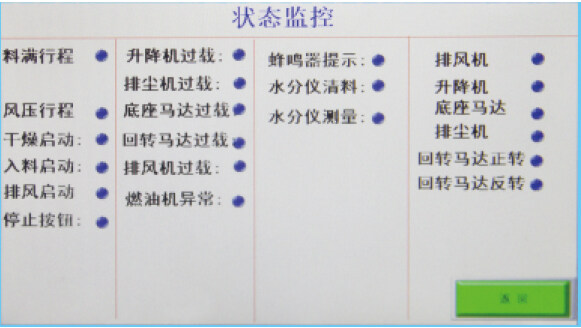 状态监控
料满行程
风压行程
干燥启动:
入料启动:
排风启动
停止按钮:
升降机过载:
排尘机过载:
底座马达过载
回转马达过载
排风机过载:
燃油机异常:
蜂鸣器提示:
水分仪清料:
水分仪测量:
排风机
升降机
底座马达
排尘机
回转马达正转
回转马达反转